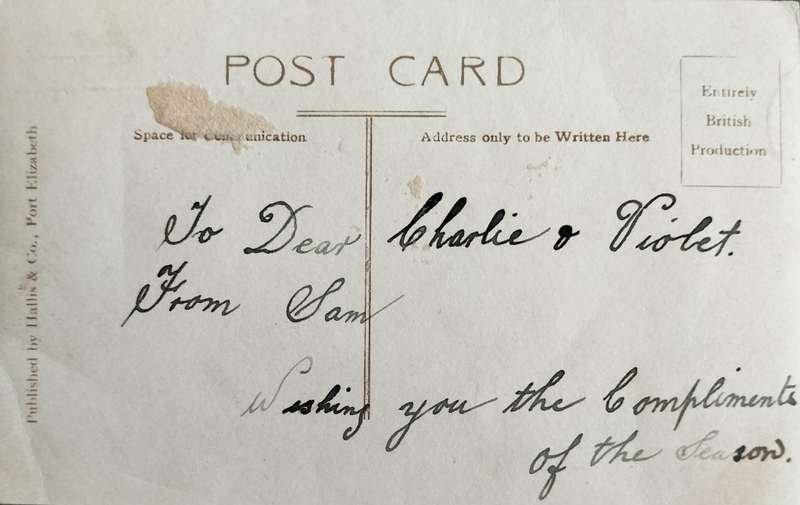 POST CARD
Space for Communication
Address only to be Written Here
Entirely
British
Production
Published by Hallis & Co., Port Elizabeth
To Dear Charlie & Violet.
From Sam
Wishing you the Compliments
of the Season.